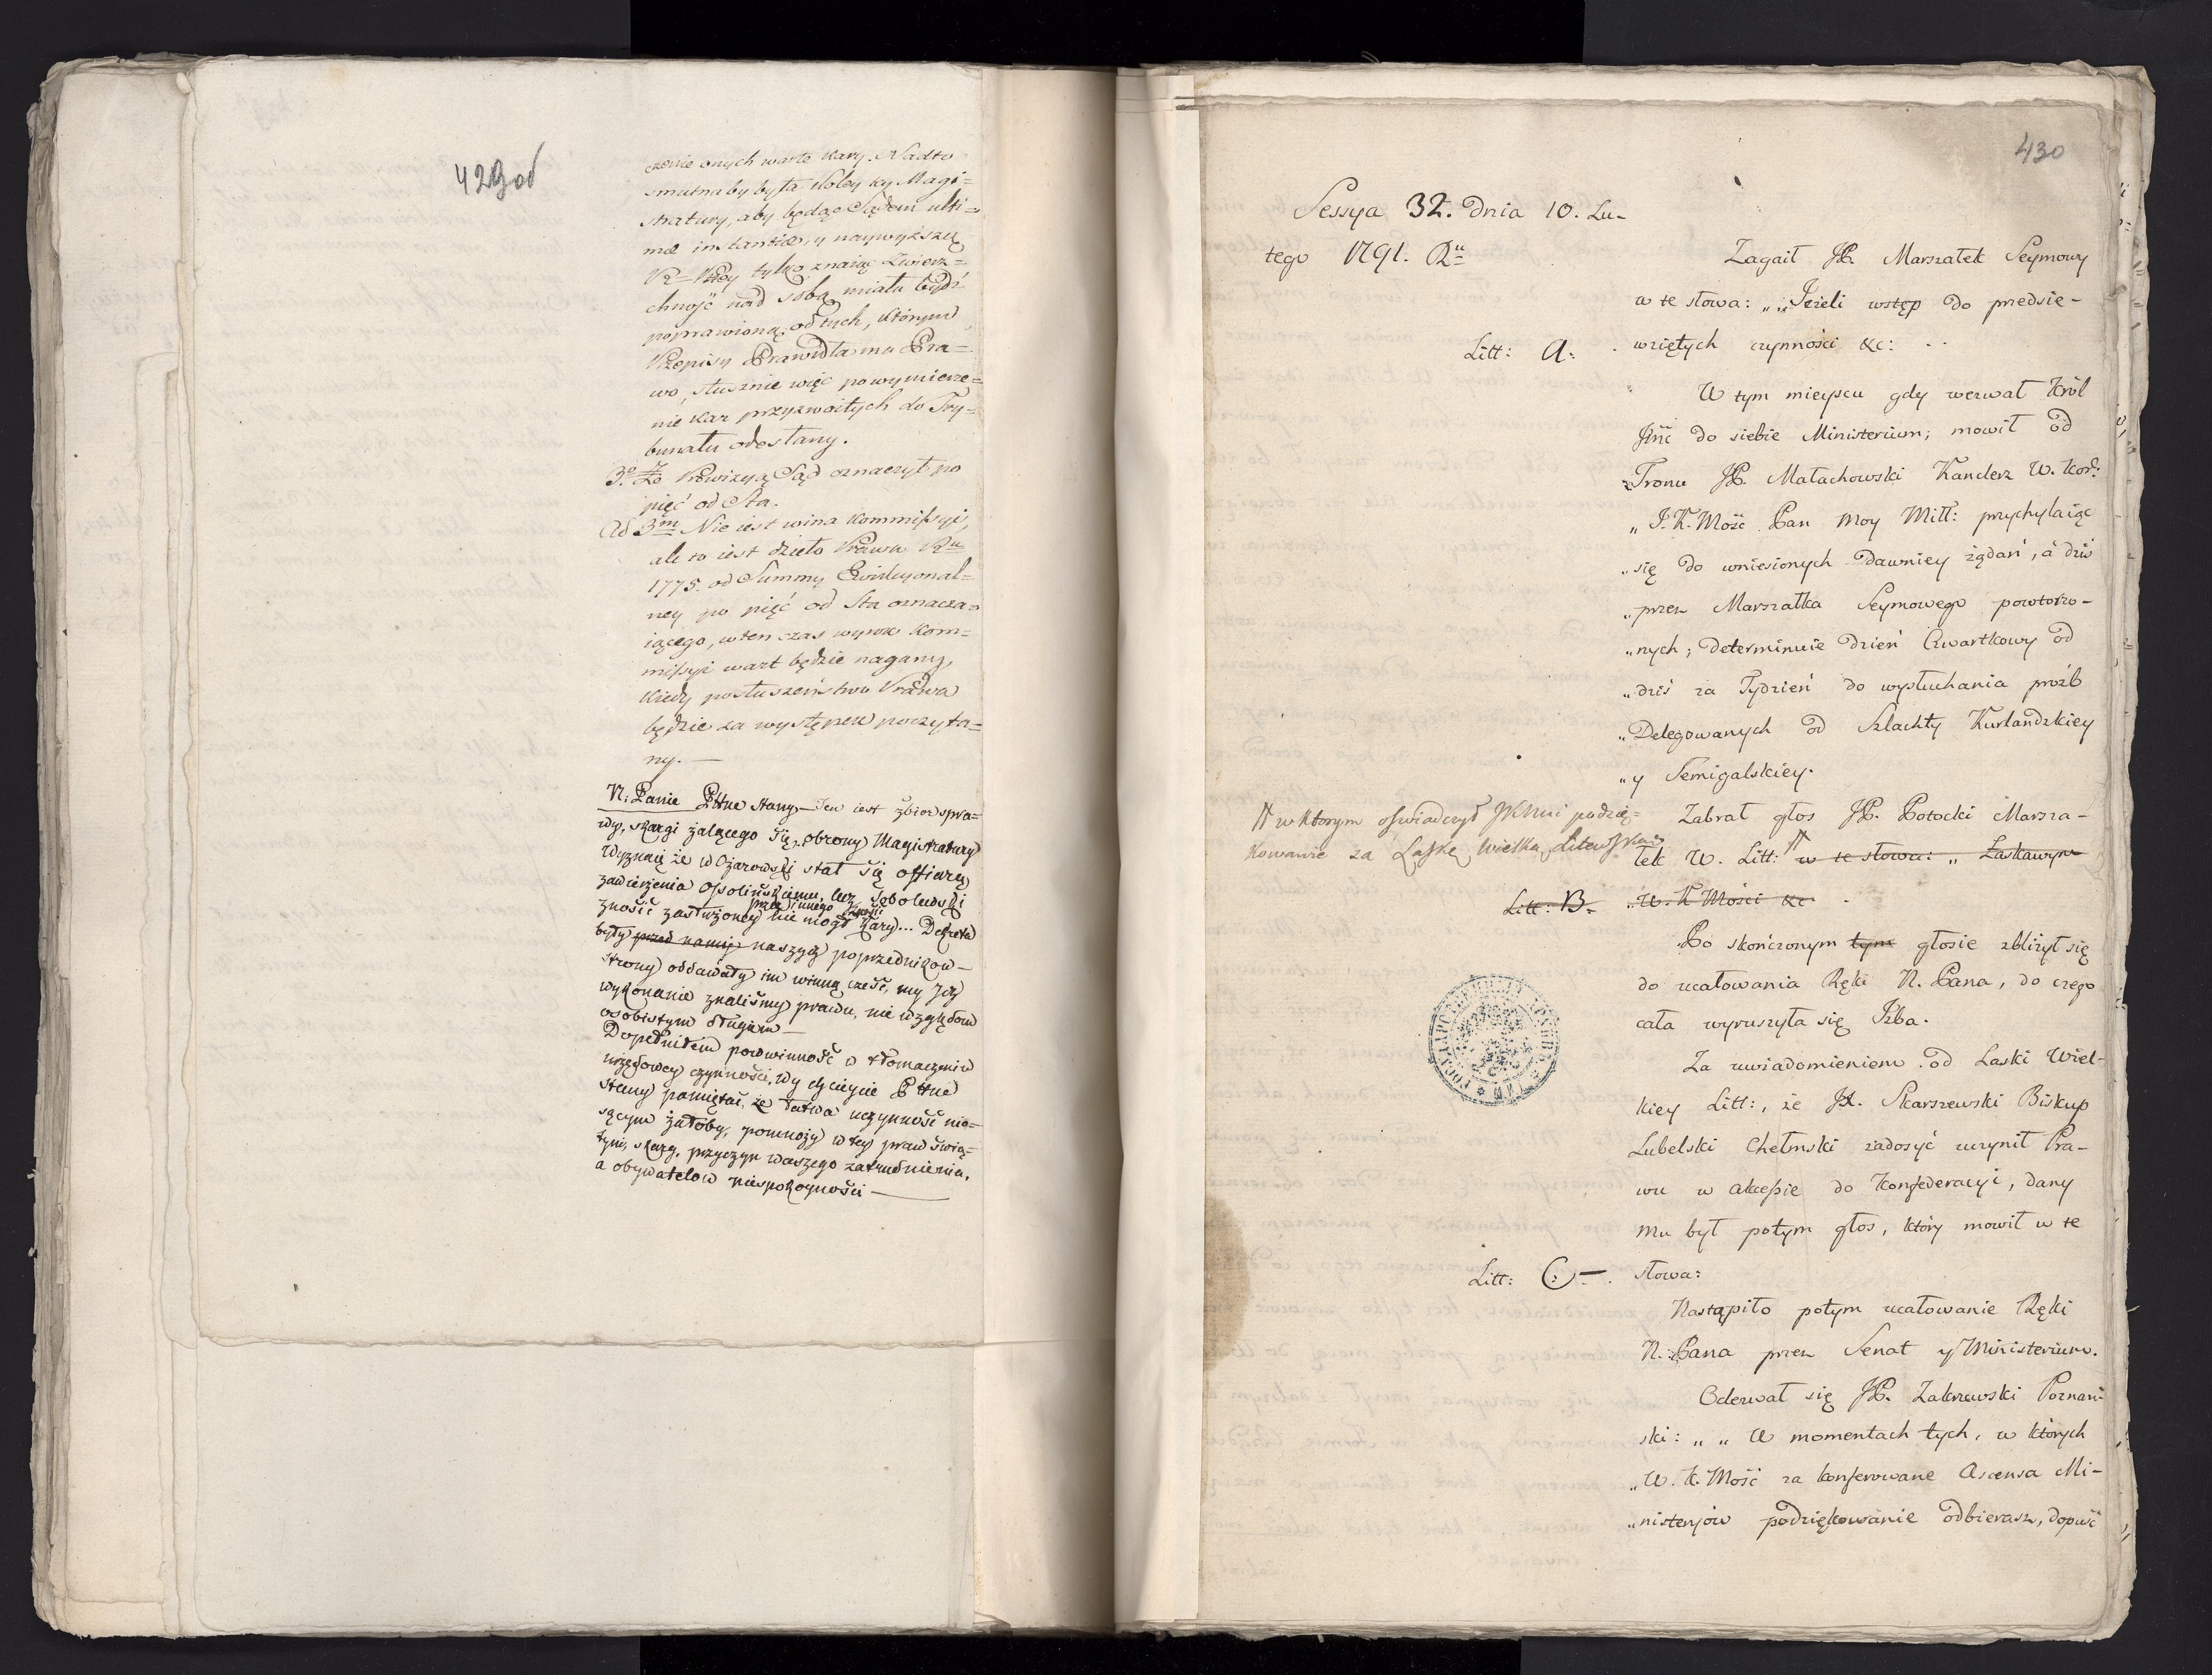 429 od
czenie onych warte kary. Nadto
smutna by była kolej tey Magi=
stratury, aby będąc Sądem ulti=
mæ instantiæ, y naywyższą
Rz=Pltey tylko znaiąc Zwierz=
chność nad sobą miała bydź
poprawioną od tych, którym
Przepisy Prawidłem Pra=
wo, słusznie więc po wymierze=
nie kar przyzwoitych do Try=
bunału odesłany.
3º Że Prowizyą Sąd oznaczył po
pięć od Sta.
Ad 3m Nie iest wina Kommissyi,
ale to iest dzieło Prawa Ru
1775. od Summy Ewikcyonal=
ney po pięć od Sta oznacza=
iącego, w ten czas wyrok Kom=
missyi wart będzie nagany,
kiedy posłuszeństwo Prawa
będzie za występek poczyta=
ny. —
N: Panie Pttne Stany — Ten iest zbior spra=
wy, skargi żalącego się, obrony Magistratury
Wyznaię że W Ożarowski stał się offiarą
zawierzenia Ossolińskiemu, lecz Sobolewski
przez innego
znosić zasłużoney nie mogł kary... Dekreta
były przed nami naszych poprzednikow —
strony oddawały im winną cześć, my Jch
wykonanie znaliśmy prawu, nie względom
osobistym długiem —
Dopełniłem powinność w tłomaczeniu
urzędowey czynności, Wy chcieycie Pttne
Stany pamiętać, że łatwa uczynność nio=
sącym żałoby, pomnoży w tey praw świą=
tyni, skarg, przyczyn waszego zatrudnienia,
a obywatelow niespokoyności —
430
Sessya 32. Dnia 10. Lu-
tego 1791. Ru
Zagaił JP. Marszałek Seymowy
w te słowa: „„Jeżeli wstęp do przedsie-
Litt: A: wziętych czynności &c:
W tym mieyscu gdy wezwał Król
Jmć do siebie Ministerium; mowił od
Tronu JP. Małachowski Kanclerz W. Kor:
„J. K. Mość Pan Moy Mił: przychylaiąc
„się do wniesionych dawniey żądań, à dziś
„przez Marszałka Seymowego powtorzo-
„nych; determinuie dzień Czwartkowy od
„dziś za Tydzień do wysłuchania próźb
„Delegowanych od Szlachty Kurlandzkiey
„y Semigalskiey.
Zabrał głos JP. Potocki Marsza-
# w ktorym oświadczył JKMci podzię=
kowanie za Laskę Wielką Litewską
łek W. Litt: # w te słowa: „Łaskawym
Litt: B. „W. K Mości &c
Po skończonym tym głosie zbliżył się
do ucałowania Ręki N. Pana, do czego
cała wyruszyła się Izba.
Za uwiadomieniem od Laski Wiel-
kiey Litt:, że JX. Skarszewski Biskup
Lubelski Chełmski zadosyć uczynił Pra-
wu w akcessie do Konfederacyi, dany
mu był potym głos, który mowił w te
Litt: C: — słowa:
Nastąpiło potym ucałowanie Ręki
N: Pana przez Senat y Ministerium.
Odezwał się JP. Zakrzewski Poznań-
ski: „„W momentach tych, w których
„W. K. Mość za konferowane Ascensa Mi-
„nisteryów podziękowanie odbierasz, dopuść